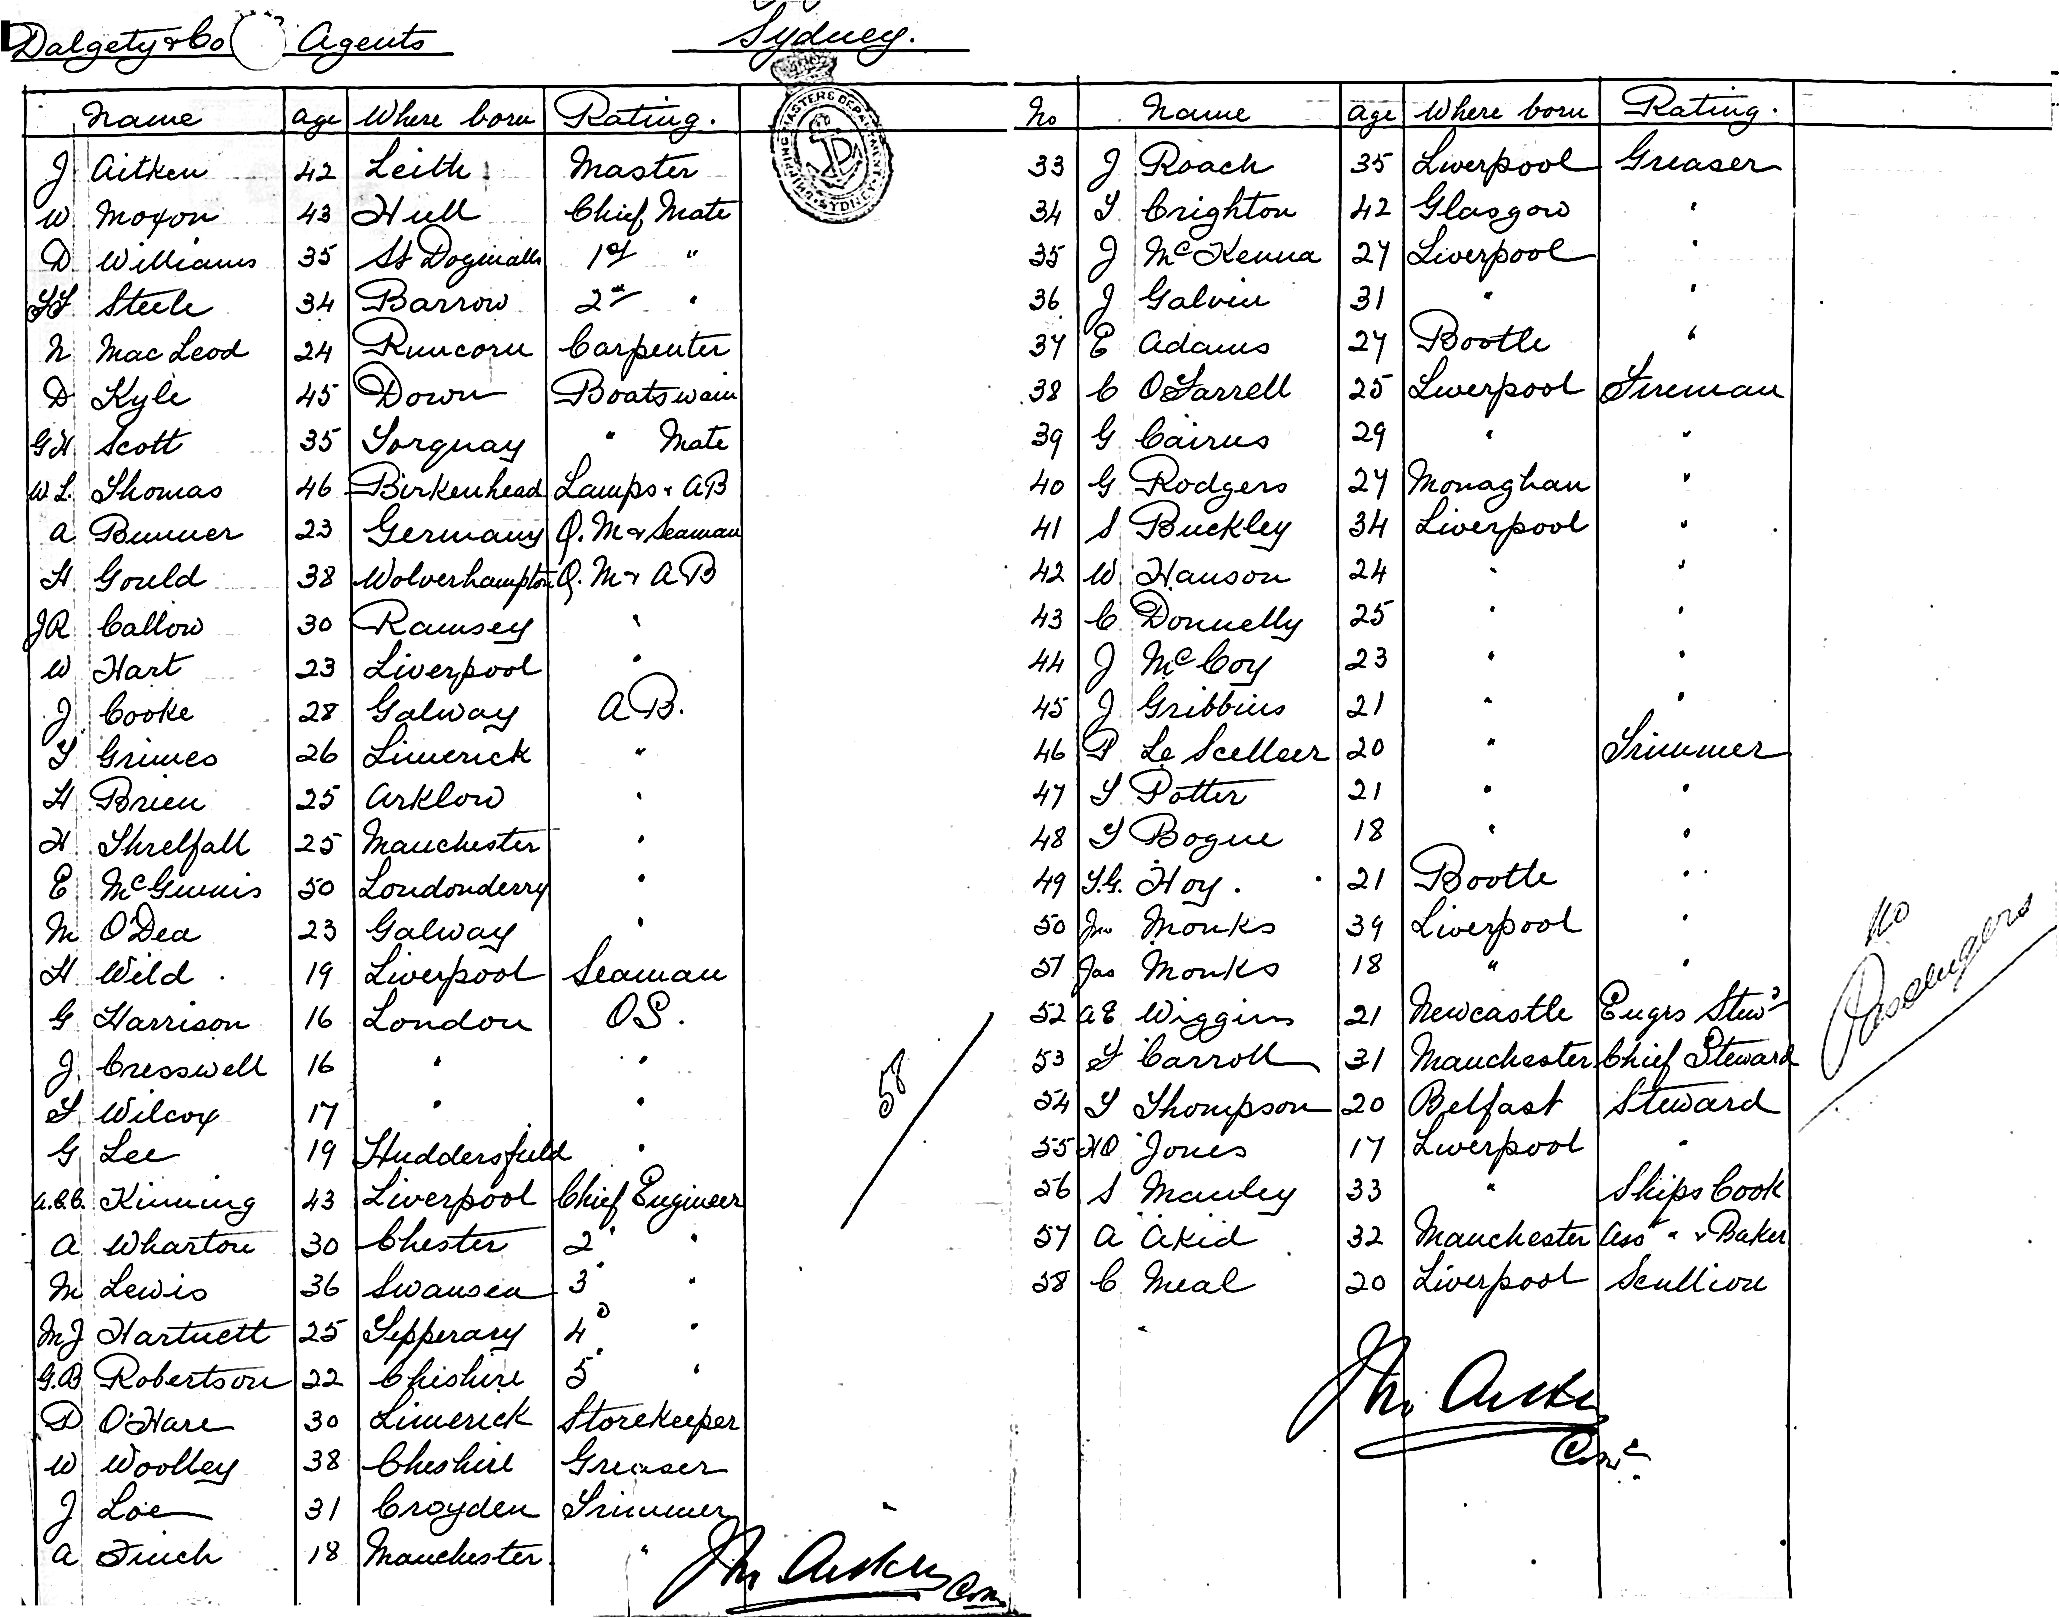 Dalgety & Co Agents Sydney.
Name age Where born Rating.
J Aitken 42 Leith Master
W Moxon 43 Hull Chief Mate
D Williams 35 St Dogmalls 1st "
Steele 34 Barrow 2nd "
N MacLeod 24 Runcorn Carpenter
D Kyle 45 Down Boatswain
G H Scott 35 Torquay " Mate
W L. Thomas 46 Birkenhead Lamps & AB
A Bunner 23 Germany Q. M & Seaman
H Gould 38 Wolverhampton Q. M & AB
J R Callow 30 Ramsey "
W Hart 23 Liverpool "
J Cooke 28 Galway AB.
T Grimes 26 Limerick "
H Brien 25 Arklow "
H Threlfall 25 Manchester "
E McGinnis 50 Londonderry "
M O'Dea 23 Galway "
H Wild 19 Liverpool Seaman
G Harrison 16 London OS.
J Cresswell 16 " "
T Wilcox 17 " "
G Lee 19 Huddersfield "
Kinning 43 Liverpool Chief Engineer
A Wharton 30 Chester 2 "
M Lewis 36 Swansea 3 "
M J Hartnett 25 Tipperary 4 "
G.B Robertson 22 Cheshire 5 "
D O'Hare 30 Limerick Storekeeper
W Woolley 38 Cheshire Greaser
J Loe 31 Croyden Trimmer
A Finch 18 Manchester "
Jn Aitken Com
58
No Name age Where born Rating.
33 J Roach 35 Liverpool Greaser
34 T Crighton 42 Glasgow "
35 J McKenna 27 Liverpool "
36 J Galvin 31 " "
37 E Adams 27 Bootle "
38 C O'Farrell 25 Liverpool Fireman
39 G Cairns 29 " "
40 G Rodgers 27 Monaghan "
41 S Buckley 34 Liverpool "
42 W Hanson 24 " "
43 C Donnelly 25 " "
44 J McCoy 23 " "
45 J Gribbins 21 " "
46 P Le Scelleer 20 " Trimmer
47 T Potter 21 " "
48 T Bogue 18 " "
49 T.G. Hoy. 21 Bootle "
50 Jno Monks 39 Liverpool "
51 Jas Monks 18 " "
52 A E Wiggins 21 Newcastle Engrs Stewd
53 T Carroll 31 Manchester Chief Steward
54 T Thompson 20 Belfast Steward
55 H O Jones 17 Liverpool "
56 S Manley 33 " Ships Cook
57 A Akid 32 Manchester Asst " & Baker
58 C Meal 20 Liverpool Scullion
No
Passengers
Jn Aitken